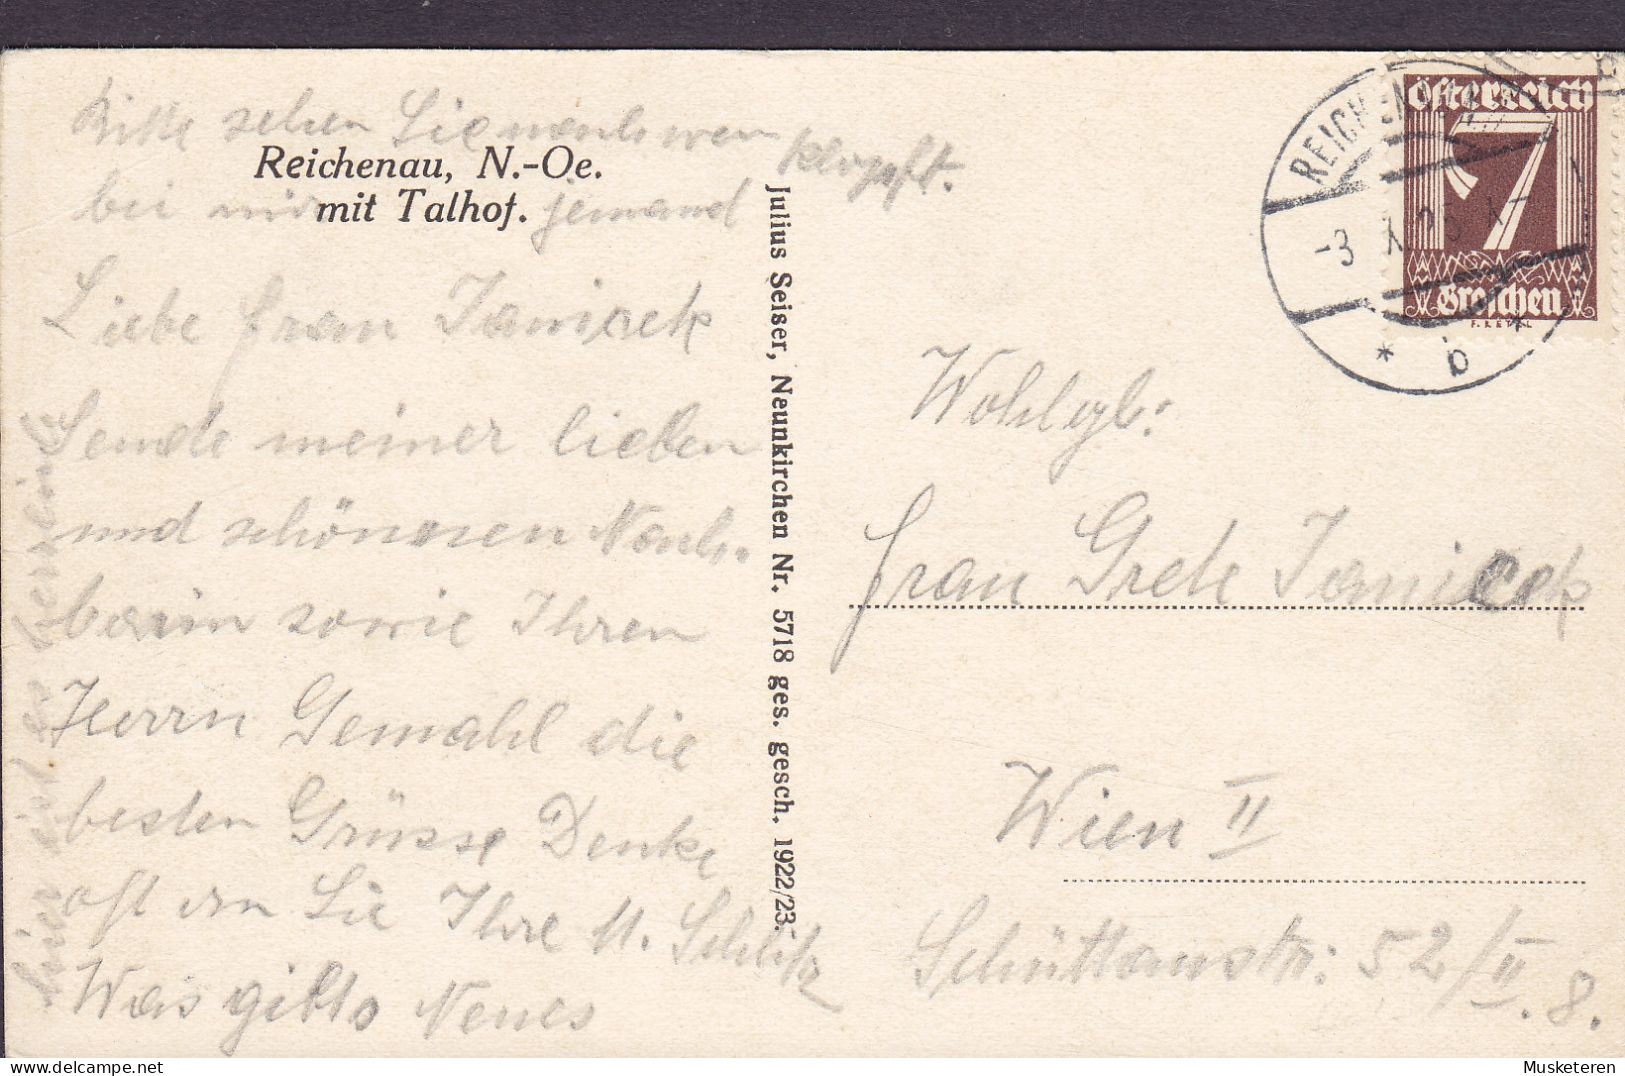 Bitte sehen Sie nach wenn
bei mir jemand klopft.
Reichenau, N.-Oe.
mit Talhof.
Liebe Frau Janicek
Sende meiner lieben
und schönsten Nach-
barin sowie Ihren
Herrn Gemahl die
besten Grüsse Denke
oft an Sie Ihre M.
Was gibts Neues
hier ist es herrlich
Julius Seiser, Neunkirchen Nr. 5718 ges. gesch. 1922/23.
REICHENAU
-3. X. 25
* b *
Österreich
7
Groschen
Wohlgb:
Frau Grete Janicek
Wien II
Schüttaustr: 52/II. 8.
Musketeren